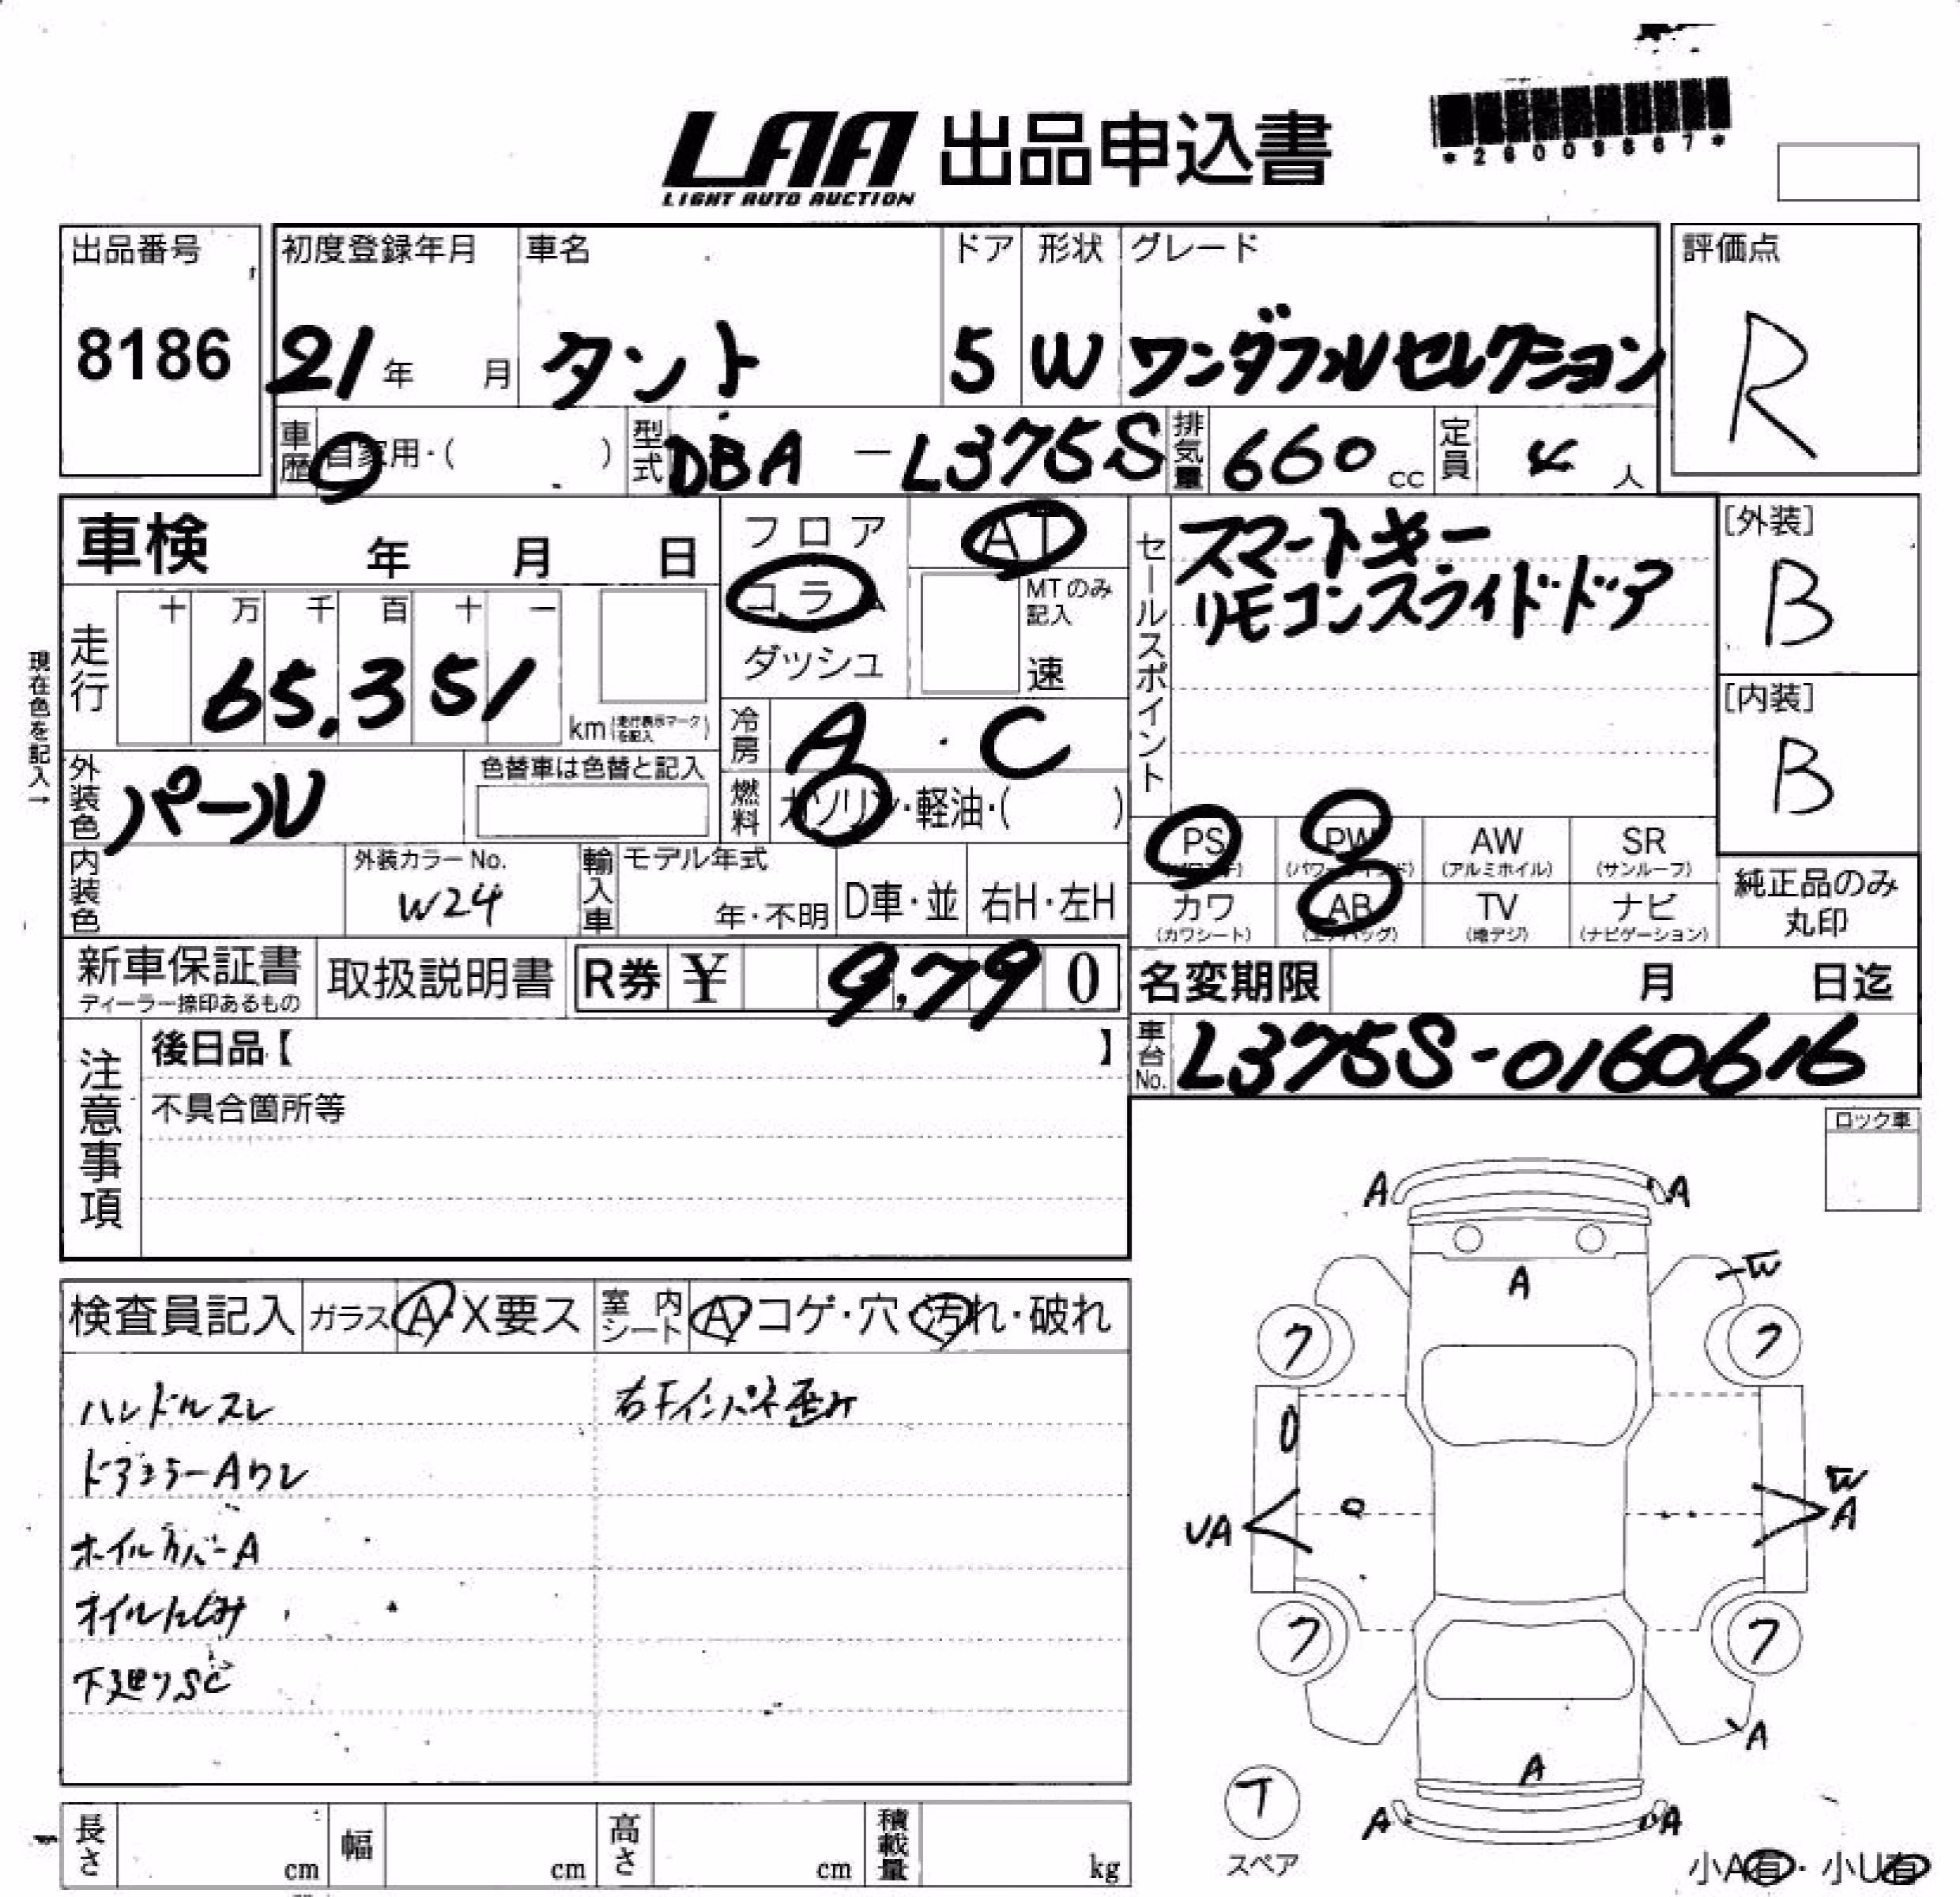 LAA 出品申込書
LIGHT AUTO AUCTION
*26009867*
出品番号 初度登録年月 車名 ドア 形状 グレード 評価点
8186 21年 月 タント 5 W ワンダフルセレクション R
車歴 自家用・( ) 型式 DBA-L375S 排気量 660cc 定員 4人
車検 年 月 日
フロア AT
コラム
ダッシュ
MTのみ記入
速
セールスポイント
スマートキー
リモコンスライドドア
[外装]
B
[内装]
B
現在色を記入→
走行 十 万 千 百 十 一
65,351
km(走行表示マークを記入)
冷房 A・C
外装色 パール 色替車は色替と記入
燃料 ガソリン・軽油・( )
PS PW AW SR
(パワーウインド) (アルミホイル) (サンルーフ)
カワ AB TV ナビ
(カワシート) (エアバッグ) (地デジ) (ナビゲーション)
純正品のみ
丸印
内装色 外装カラーNo. W24
輸入車 モデル年式 年・不明 D車・並 右H・左H
新車保証書 取扱説明書 R券 ¥ 9,790
ディーラー捺印あるもの
名変期限 月 日迄
車台No. L375S-0160616
注意事項
後日品【 】
不具合箇所等
ロック車
検査員記入 ガラス A・X要ス 室内シート A・コゲ・穴・汚れ・破れ
ハンドルスレ 右下インパネ歪み
ドアミラーAワレ
ホイルカバーA
オイルにじみ
下廻りSC
A A
A
W
ワ ワ
U
W
A
UA
ワ ワ
A
A
A A
T
スペア
小A有・小U有
長さ cm 幅 cm 高さ cm 積載量 kg